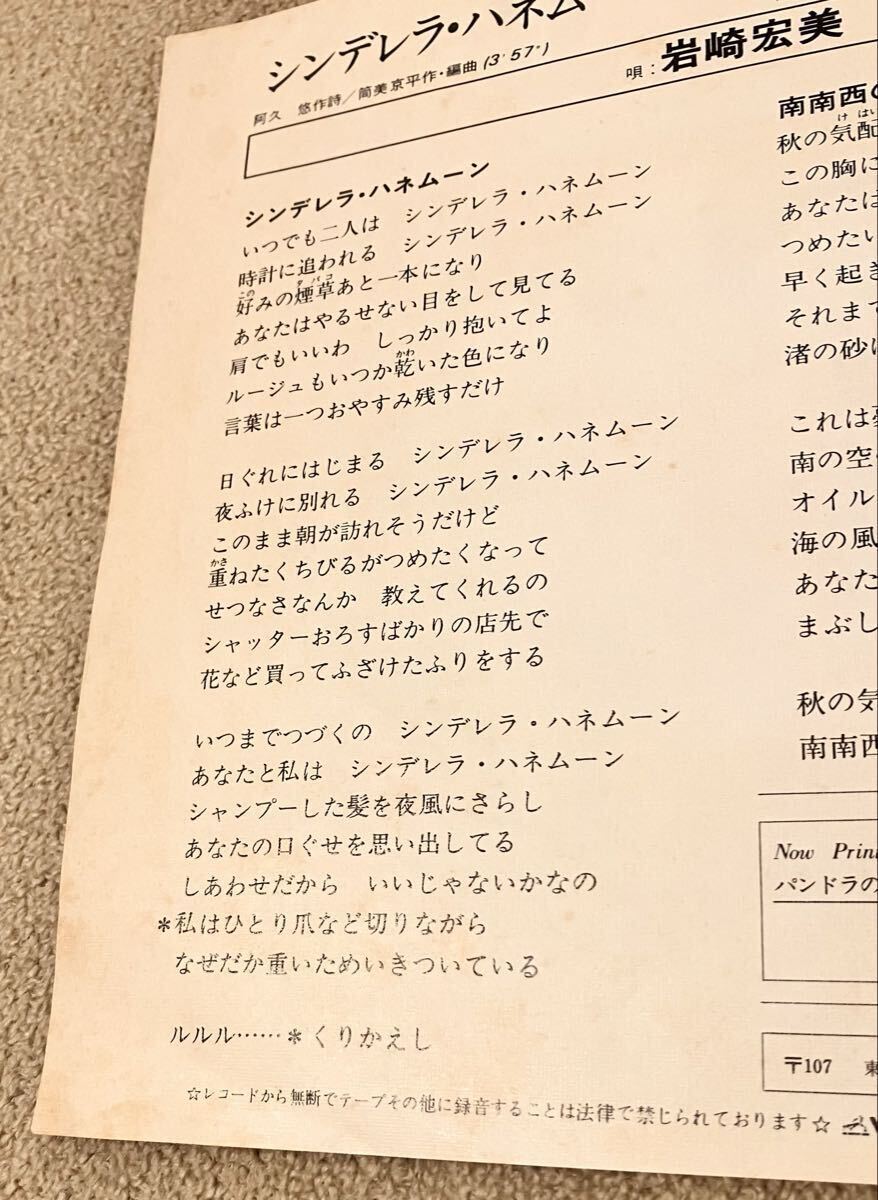 シンデレラ・ハネム
阿久 悠作詩/筒美京平作・編曲(3'57")
唄:岩崎宏美
シンデレラ・ハネムーン
いつでも二人は シンデレラ・ハネムーン
時計に追われる シンデレラ・ハネムーン
好みの煙草あと一本になり
あなたはやるせない目をして見てる
肩でもいいわ しっかり抱いてよ
ルージュもいつか乾いた色になり
言葉は一つおやすみ残すだけ
日ぐれにはじまる シンデレラ・ハネムーン
夜ふけに別れる シンデレラ・ハネムーン
このまま朝が訪れそうだけど
重ねたくちびるがつめたくなって
せつなさなんか 教えてくれるの
シャッターおろすばかりの店先で
花など買ってふざけたふりをする
いつまでつづくの シンデレラ・ハネムーン
あなたと私は シンデレラ・ハネムーン
シャンプーした髪を夜風にさらし
あなたの口ぐせを思い出してる
しあわせだから いいじゃないかなの
*私はひとり爪など切りながら
なぜだか重いためいきついている
ルルル……*くりかえし
☆レコードから無断でテープその他に録音することは法律で禁じられております☆
南南西の
秋の気配
この胸に
あなたは
つめたい
早く起き
それまで
渚の砂に
これは
南の空
オイル
海の風
あなた
まぶし
秋の気
南南西
Now Prin
パンドラの
〒107 東